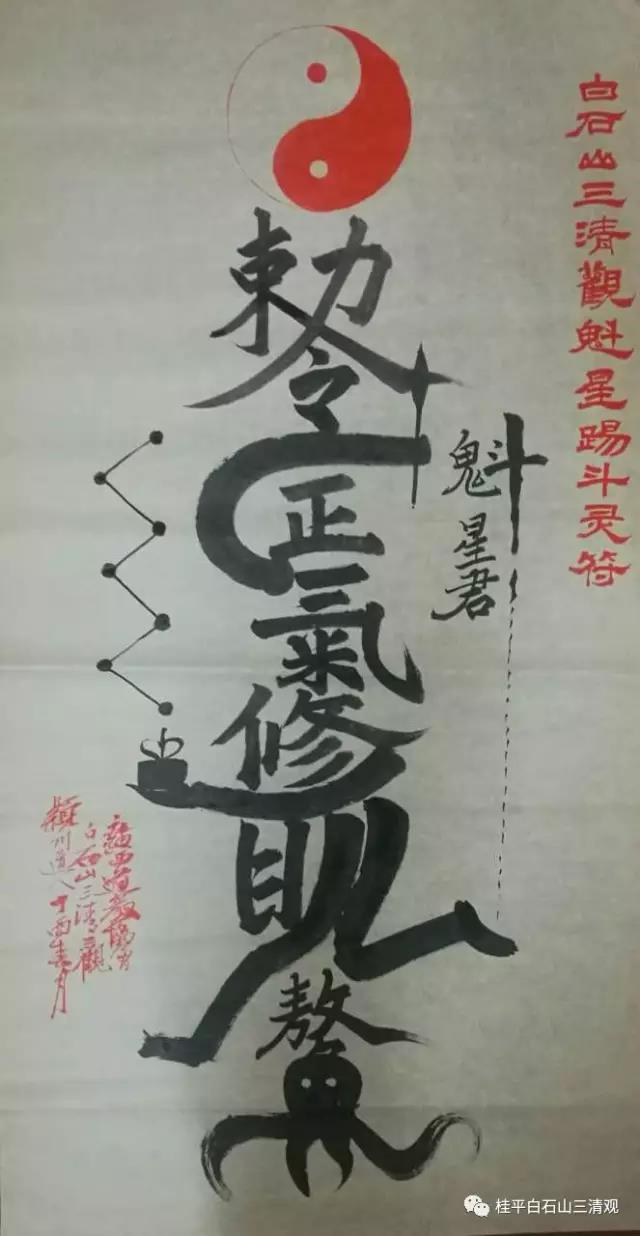 白石山三清觀魁星踢斗灵符
魁星君
勅令
正氣修
鰲
白石山三清觀
川道人丁酉春月
桂平白石山三清观